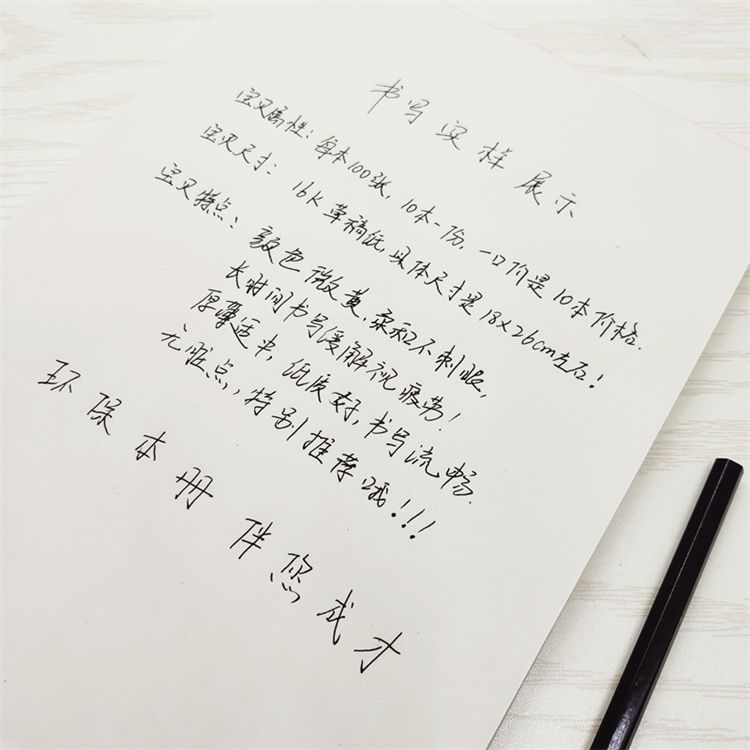 书写实样展示
宝贝属性：每本100张，10本一份，一口价是10本价格.
宝贝尺寸：16K草稿纸，具体尺寸是18×26cm左右！
宝贝特点：颜色微黄，柔和不刺眼，
长时间书写缓解视疲劳！
厚薄适中，纸质好，书写流畅.
无脏点，特别推荐哦！！！
环保本册 伴您成才